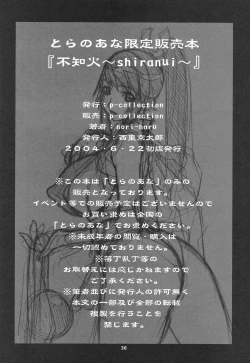 とらのあな限定販売本
『不知火～shiranui～』
発行：p-collection
販売：p-collection
著者：nori-haru
発行人：西東文太郎
2004・6・22初版発行
※この本は「とらのあな」のみの
販売となっております。
イベント等での販売予定はございませんので
お買い求めは全国の
「とらのあな」でお求めください。
※未成年者の閲覧・購入は
一切認めておりません。
※落丁乱丁等の
お取替えには応じかねますので
ご了承ください。
※著者並びに発行人の許可無く
本文の一部及び全部の転載
複製を行うことを
禁じます。
36